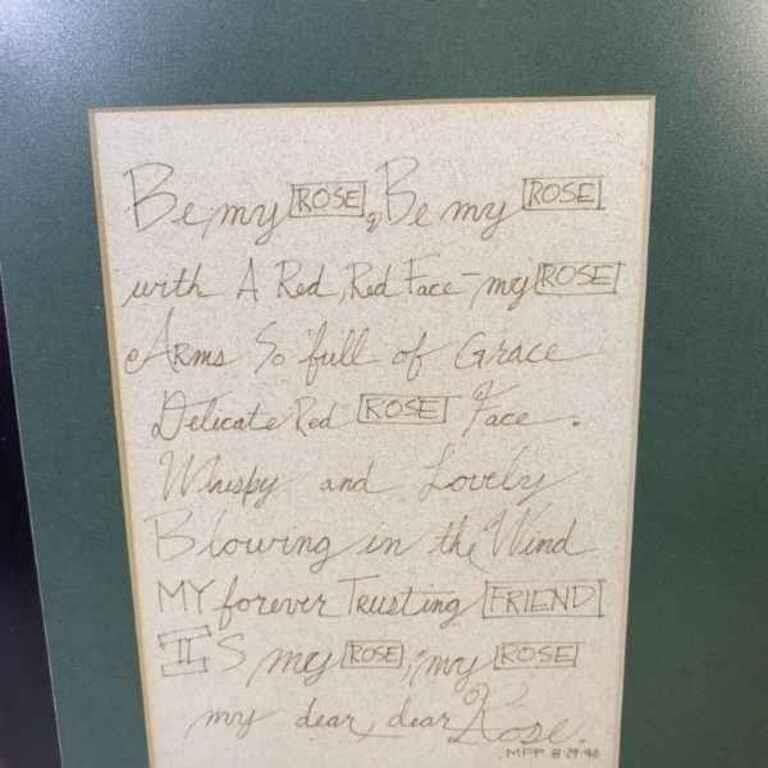 Be my ROSE, Be my ROSE
with A Red, Red Face - my ROSE
Arms So full of Grace
Delicate Red ROSE Face.
Whispy and Lovely
Blowing in the Wind
MY forever Trusting FRIEND
IS my ROSE, my ROSE
my dear, dear Rose.